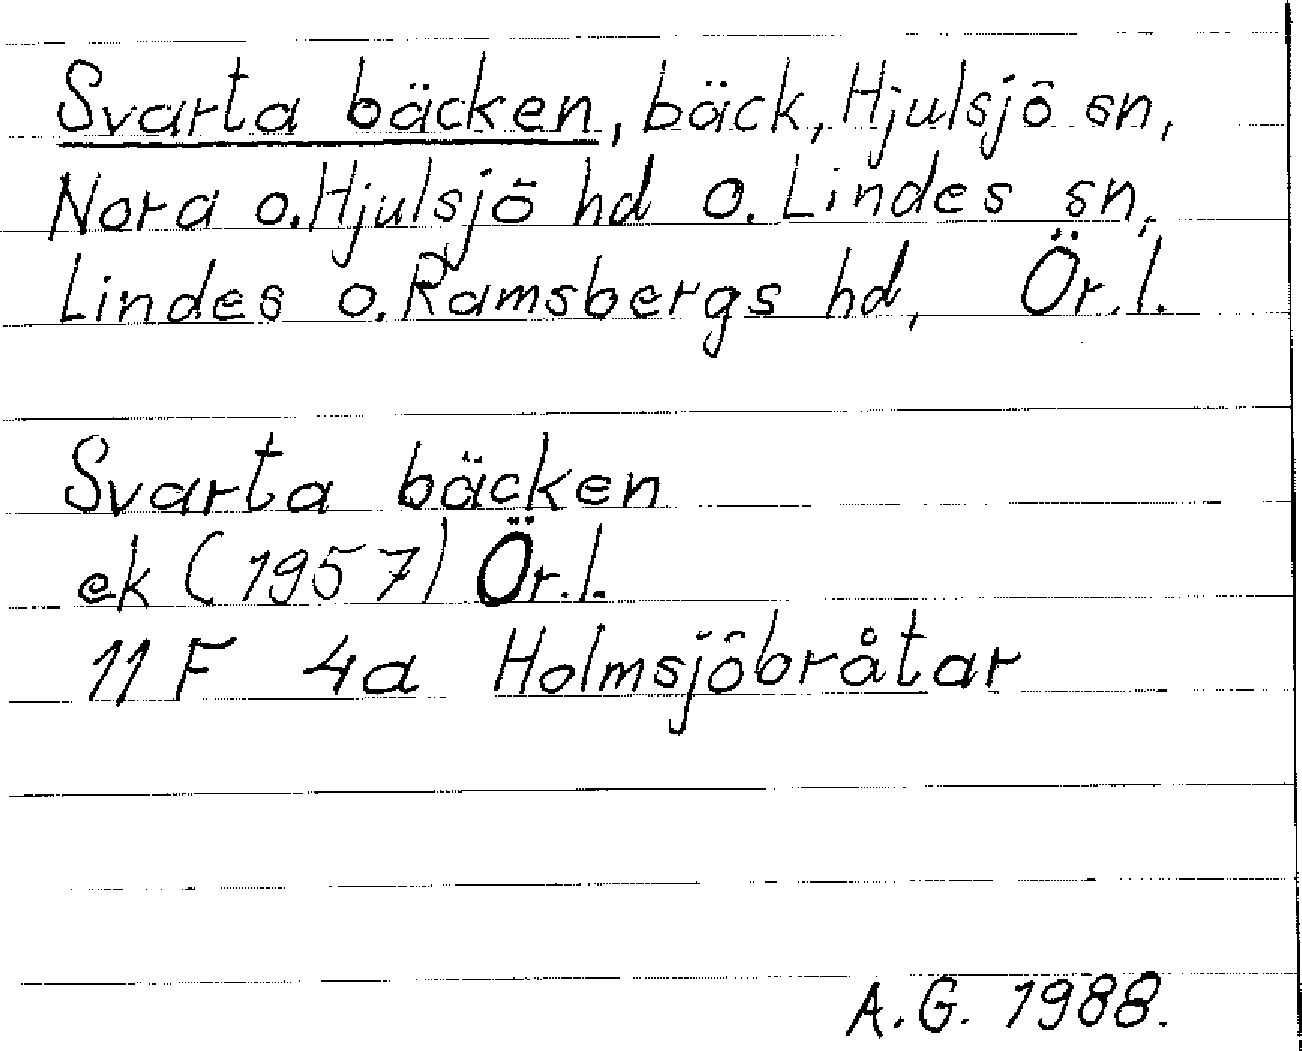 Svarta bäcken, bäck, Hjulsjö sn,
Nora o. Hjulsjö hd o. Lindes sn,
Lindes o. Ramsbergs hd, Ör. l.
Svarta bäcken
ek (1957) Ör. l.
11 F 4a Holmsjöbråtar
A.G. 1988.